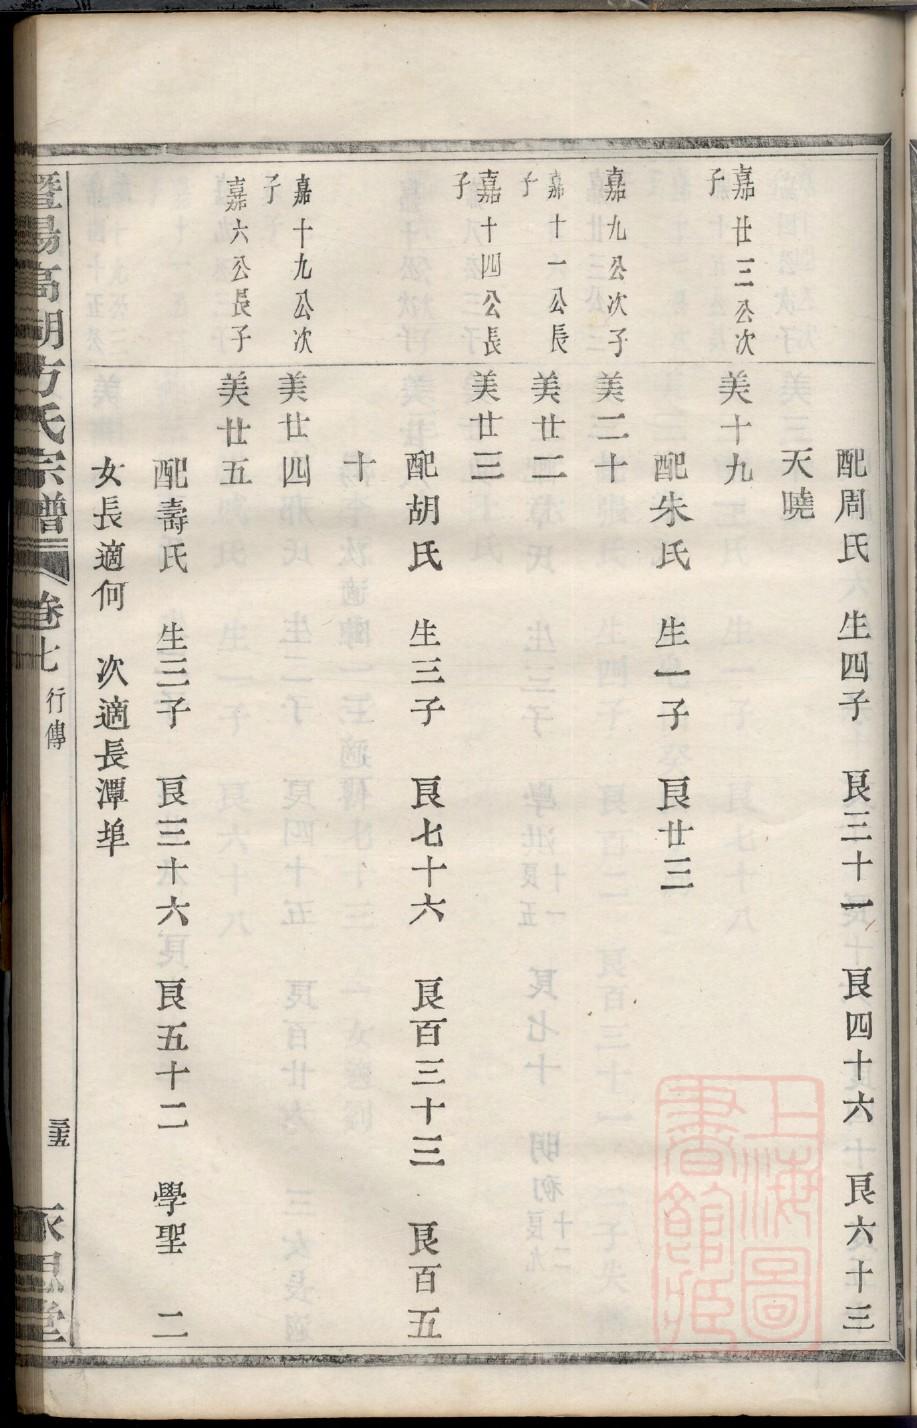 配周氏 生四子 艮三十一 艮四十六 艮六十三
天曉
嘉廿三公次子 美十九
配朱氏 生一子 艮廿三
嘉九公次子 美二十
嘉廿一公長子 美廿二
嘉十四公長子 美廿三
配胡氏 生三子 艮七十六 艮百三十三 艮百五
十
嘉十九公次子 美廿四
嘉六公長子 美廿五
配壽氏 生三子 艮三十六 艮五十二 學聖 二
女長適何 次適長潭埠
暨陽高湖方氏宗譜 卷七 行傳 永思堂
上海圖書館藏